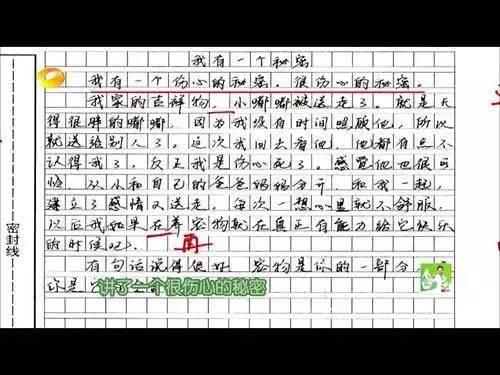 我有一个秘密
我有一个伤心的秘密。很伤心的秘密。
我家的吉祥物,小嘟嘟被送走了。就是长
得很胖的嘟嘟,因为我没有时间照顾他,所以
就送给别人了。这次我回去看他,他都有点不
认得我了,反正我是伤心死了。感觉他也很可
怜,从小和自己的爸爸妈妈分开,和我一起,
建立了感情又送走,每次一想心里就不舒服,
以后我如果在养宠物就在真正有能力给它快乐
再
的时候吧。
有句话说得很好 宠物是你的一部分
你是它
讲了一个很伤心的秘密
密封线